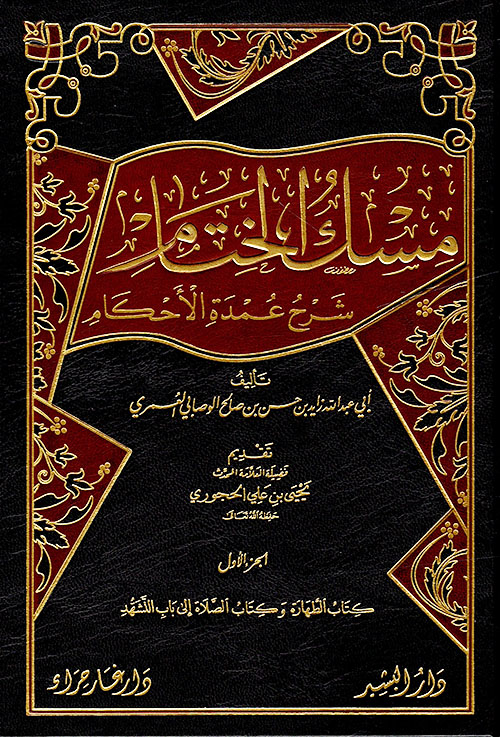 مِسْكُ الخِتَامِ
شَرْحُ عُمْدَةِ الْأَحْكَامِ
تَأليفُ
أبي عبد الله زايد بن حسن بن صالح الوصابي العُمَري
تَقْديم
فَضِيلَة العَلَّامَة المحَدِّث
يَحْيَى بن عَلي الحجوري
حَفِظَهُ اللهُ تَعَالَى
الجزء الأول
كِتَابُ الطَّهَارَة وَكِتَابُ الصَّلَاة إلى بَابِ التَّشَهُّدِ
دَارُ البَشِير
دَار غَار حِرَاء